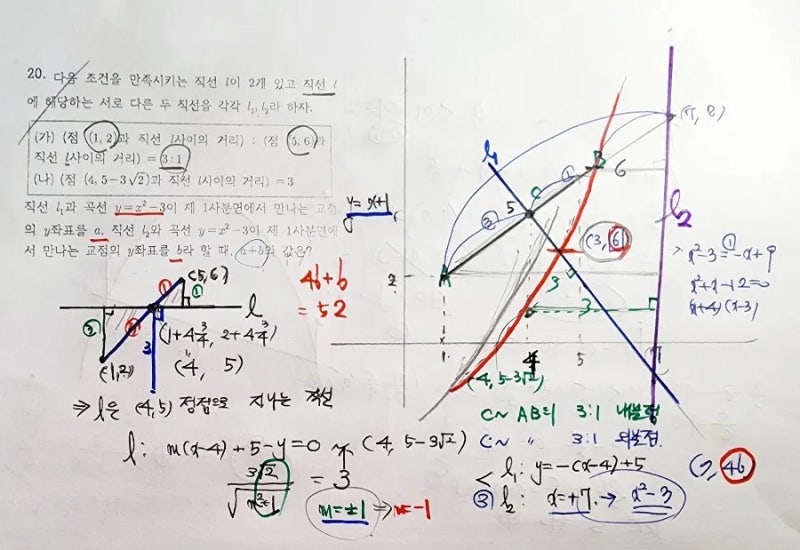 20. 다음 조건을 만족시키는 직선 l이 2개 있고 직선 l
에 해당하는 서로 다른 두 직선을 각각 l₁, l₂라 하자.
(가) (점 (1, 2)과 직선 l사이의 거리) : (점 (5, 6)과
직선 l사이의 거리) = 3 : 1
(나) (점 (4, 5-3√2)과 직선 l사이의 거리) = 3
직선 l₁과 곡선 y=x²-3이 제 1사분면에서 만나는 교점
의 y좌표를 a, 직선 l₂와 곡선 y=x²-3이 제 1사분면에
서 만나는 교점의 y좌표를 b라 할 때, a+b의 값은?
y=x+1
46+6
=52
(5,6)
①
①
l
②
3
(1,2)
(1+4·3/4, 2+4·3/4)
"
(4, 5)
⇒ l은 (4,5) 정점으로 지나는 직선
l: m(x-4)+5-y=0 ~ (4, 5-3√2)
3√2/√(m²+1) = 3
m=±1 ⇒ m=-1
l₁
(7, 8)
B
6
①
C
5
③
A
2
(3, 6)
l₂
3
3
4
5
7
(4, 5-3√2)
x²-3=-x+9
①
x²+x-12=0
(x+4)(x-3)
C~ AB의 3:1 내분점
C~ " 3:1 외분점
l₁: y=-(x-4)+5
③ l₂: x=+7 → x²-3
(7, 46)